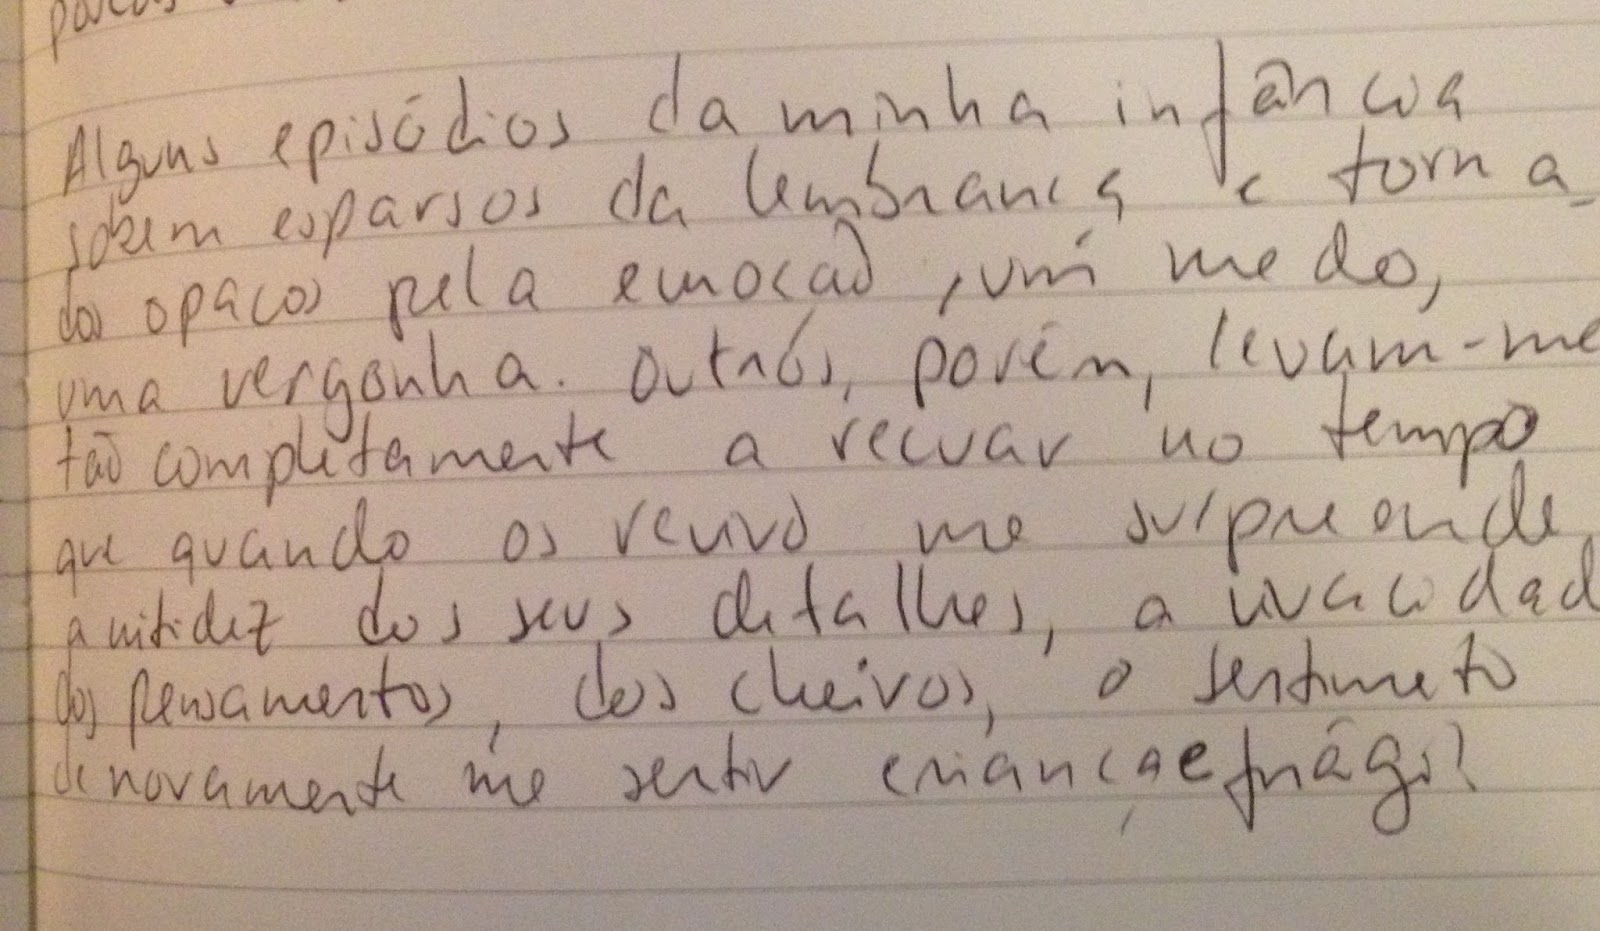 Alguns episódios da minha infância
sobem esparsos da lembrança e torna-
dos opacos pela emoção, um medo,
uma vergonha. Outros, porém, levam-me
tão completamente a recuar no tempo
que quando os revivo me surpreende
a nitidez dos seus detalhes, a vivacidad
dos pensamentos, dos cheiros, o sentimeto
de novamente me sentir criança e frágil